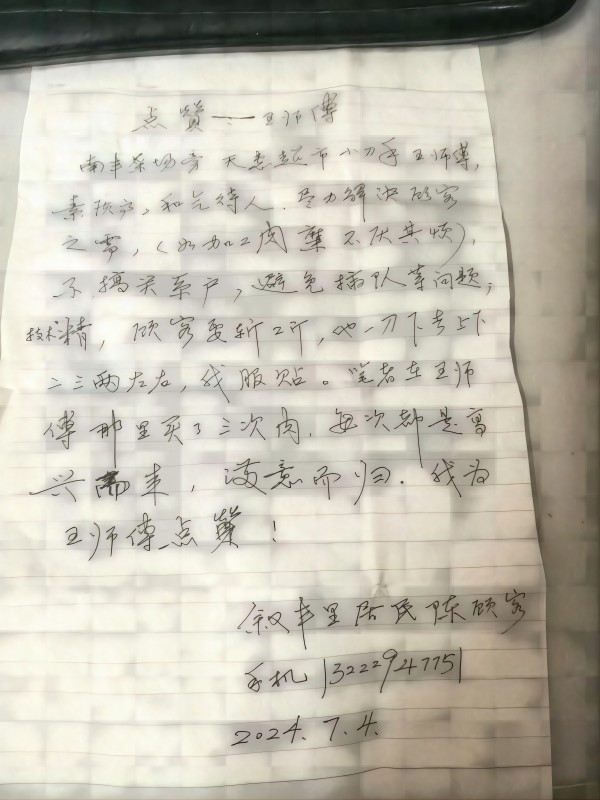 点赞——王师傅
南丰菜场旁天惠超市小刀手王师傅,
素质高,和气待人,尽力解决顾客
之需,(如加工肉糜不厌其烦),
不搞关系户,避免插队等问题,
技术精,顾客要斩2斤,他一刀下去上下
二三两左右,我服贴。笔者在王师
傅那里买了三次肉,每次都是高
兴而来,满意而归。我为
王师傅点赞!
叙丰里居民陈顾客
手机 13222947751
2024.7.4.